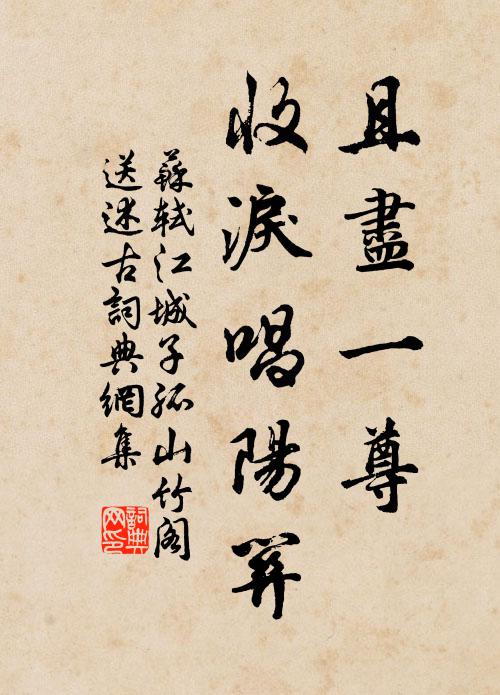 且盡一尊
收淚唱陽關
蘇軾江城子孤山竹閣
送述古詞典網集
詞典网印